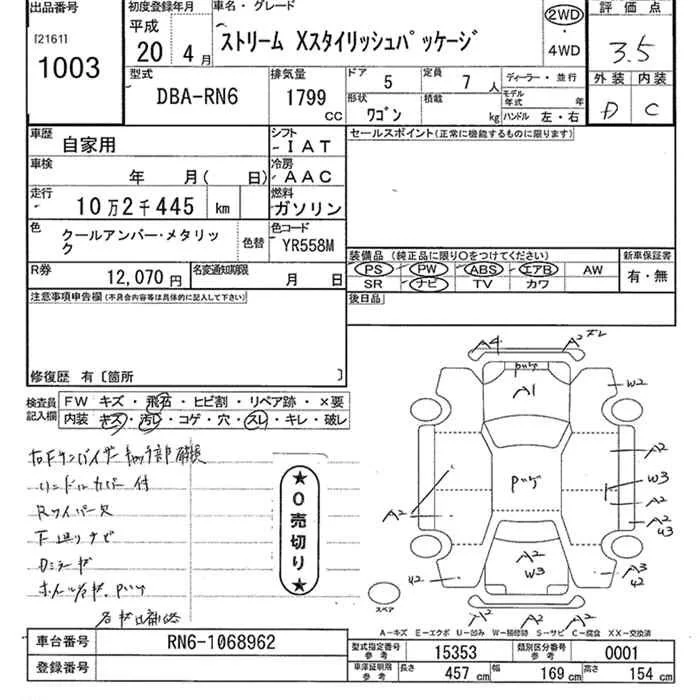 出品番号 初度登録年月 車名・グレード 評価点
[2161] 平成 2WD
1003 20 4月 ストリーム Xスタイリッシュパッケージ ・ 4WD 3.5
外装 内装
型式 排気量 ドア 5 定員 7人 ディーラー・並行
DBA-RN6 1799 cc 形状 ワゴン 積載 kg モデル年式 年 D C
ハンドル 左・右
車歴 自家用 シフト IAT セールスポイント(正常に機能するものに限ります)
車検 年 月( 日) 冷房 AAC
走行 10万2千445 km 燃料 ガソリン
色 クールアンバー・メタリック 色替 色コード YR558M
装備品 (純正品に限り○をつけてください) 新車保証書
PS PW ABS エアB AW 有・無
R券 12,070円 名変通知期限 月 日 SR ナビ TV カワ
注意事項申告欄(不具合内容等は具体的に記入して下さい) 後日品
修復歴 有〔箇所 〕
検査員記入欄 FW キズ・飛石・ヒビ割・リペア跡・×要
内装 キズ・汚レ・コゲ・穴・スレ・キレ・破レ
ハンドルカバー付
Rワイパー欠
★0売切り★
A4 A2
A1
W2
A2
W3
A2
A2
W3
A2
A2
W3
A3
A2 A2 A2
スペア
A-キズ E-エクボ U-凹み W-補修跡 S-サビ C-腐食 XX-交換済
車台番号 RN6-1068962 型式指定番号 参考 15353 類別区分番号 参考 0001
登録番号 車庫証明用 参考 長さ 457 cm 幅 169 cm 高さ 154 cm